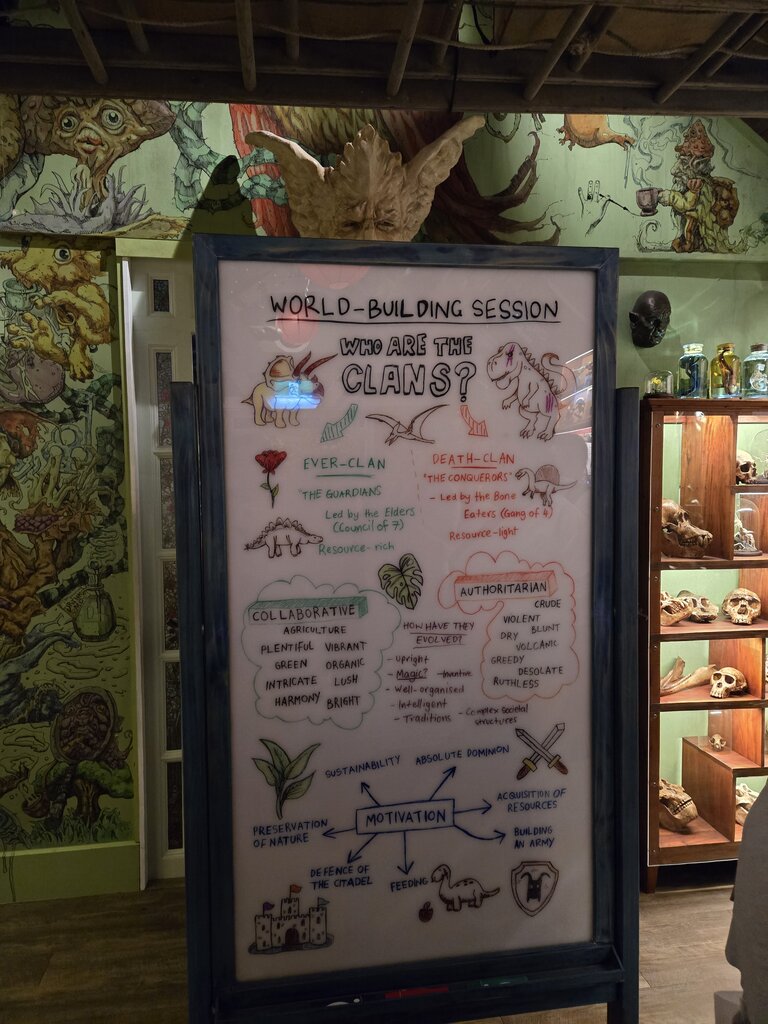 WORLD-BUILDING SESSION
WHO ARE THE
CLANS?
EVER-CLAN
"THE GUARDIANS
Led by the Elders
(Council of 7)
Resource-rich
DEATH-CLAN
"THE CONQUERORS"
- Led by the Bone
Eaters (Gang of 4)
Resource-light
COLLABORATIVE
AGRICULTURE
PLENTIFUL VIBRANT
GREEN ORGANIC
INTRICATE LUSH
HARMONY BRIGHT
HOW HAVE THEY
EVOLVED?
- Upright
- Magic? - Inventive
- Well-organised
- Intelligent
- Traditions - Complex societal
structures
AUTHORITARIAN
CRUDE
VIOLENT
DRY BLUNT
VOLCANIC
GREEDY
DESOLATE
RUTHLESS
MOTIVATION
SUSTAINABILITY
ABSOLUTE DOMINION
ACQUISITION OF
RESOURCES
BUILDING
AN ARMY
FEEDING
DEFENCE OF
THE CITADEL
PRESERVATION
OF NATURE